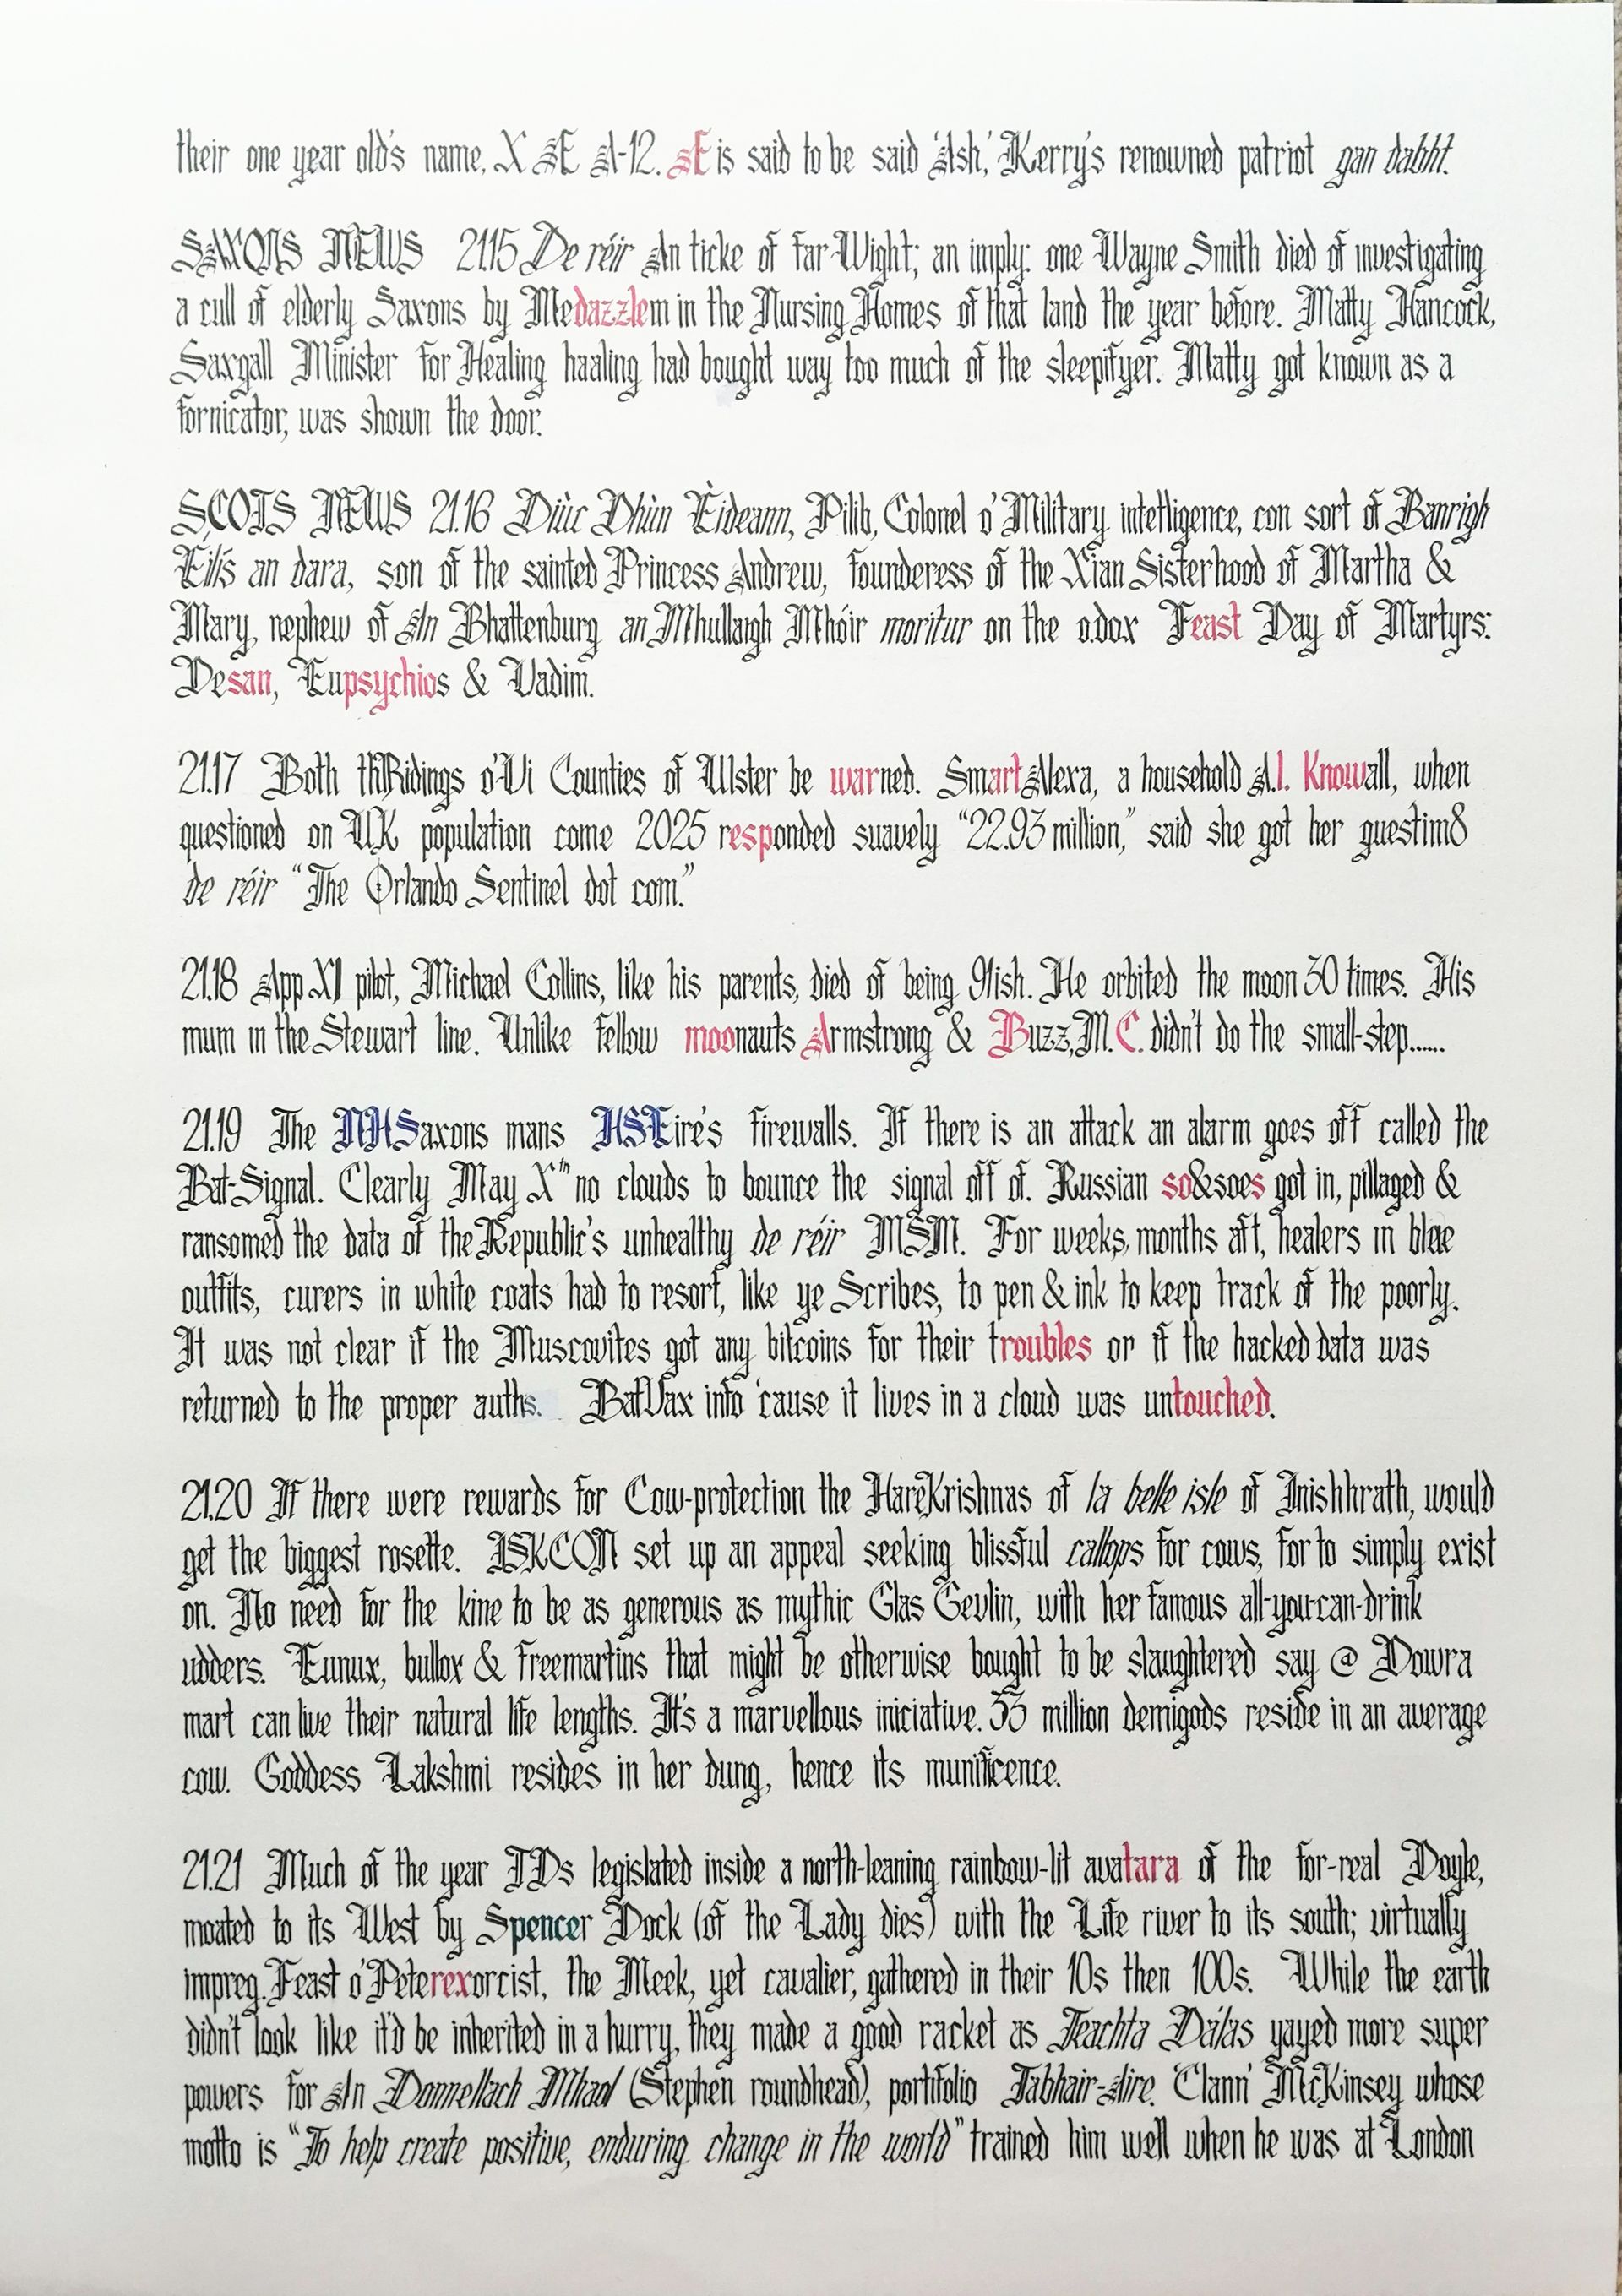 their one year old's name, X Æ A-12. Æ is said to be said 'Ash,' Kerry's renowned patriot gan dabht.
SAXONS NEWS 21.15 De réir An ticke of Far-Wight; an imply: one Wayne Smith died of investigating
a cull of elderly Saxons by Medazzlem in the Nursing Homes of that land the year before. Matty Hancock,
Saxgall Minister for Healing haaling had bought way too much of the sleepifyer. Matty got known as a
fornicator, was shown the door.
SCOTS NEWS 21.16 Diùc Dhùn Èideann, Pilib, Colonel o' Military intelligence, con sort of Banrigh
Eilís an dara, son of the sainted Princess Andrew, founderess of the Xian Sisterhood of Martha &
Mary, nephew of An Bhattenburg an Mhullaigh Mhóir moritur on the o.dox Feast Day of Martyrs:
Desan, Eupsychios & Vadim.
21.17 Both thRidings o'Vi Counties of Ulster be warned. Smart Alexa, a household A.I. Knowall, when
questioned on UK population come 2025 responded suavely "22.93 million," said she got her guestim8
de réir "The Orlando Sentinel dot com."
21.18 App XI pilot, Michael Collins, like his parents, died of being 91ish. He orbited the moon 30 times. His
mum in the Stewart line. Unlike fellow moonauts Armstrong & Buzz, M.C. didn't do the small-step......
21.19 The NHSaxons mans HSEire's firewalls. If there is an attack an alarm goes off called the
Bat-Signal. Clearly May Xth no clouds to bounce the signal off of. Russian so&soes got in, pillaged &
ransomed the data of the Republic's unhealthy de réir MSM. For weeks, months aft, healers in blue
outfits, curers in white coats had to resort, like ye Scribes, to pen & ink to keep track of the poorly.
It was not clear if the Muscovites got any bitcoins for their troubles or if the hacked data was
returned to the proper auths. BatVax info 'cause it lives in a cloud was untouched.
21.20 If there were rewards for Cow-protection the HareKrishnas of la belle isle of Inishhrath, would
get the biggest rosette. ISKCON set up an appeal seeking blissful callops for cows, for to simply exist
on. No need for the kine to be as generous as mythic Glas Gevlin, with her famous all-you-can-drink
udders. Eunux, bullox & freemartins that might be otherwise bought to be slaughtered say @ Dowra
mart can live their natural life lengths. It's a marvellous iniciative. 33 million demigods reside in an average
cow. Goddess Lakshmi resides in her dung, hence its munificence.
21.21 Much of the year TDs legislated inside a north-leaning rainbow-lit avatara of the for-real Doyle,
moated to its West by Spencer Dock (of the Lady dies) with the Life river to its south; virtually
impreg. Feast o'Peterexorcist, the Meek, yet cavalier, gathered in their 10s then 100s. While the earth
didn't look like it'd be inherited in a hurry, they made a good racket as Teachta Dálas yayed more super
powers for An Donnellach Mhaol (Stephen roundhead), portifolio Tabhair-Aire. 'Clann' McKinsey whose
motto is "To help create positive, enduring change in the world" trained him well when he was at London